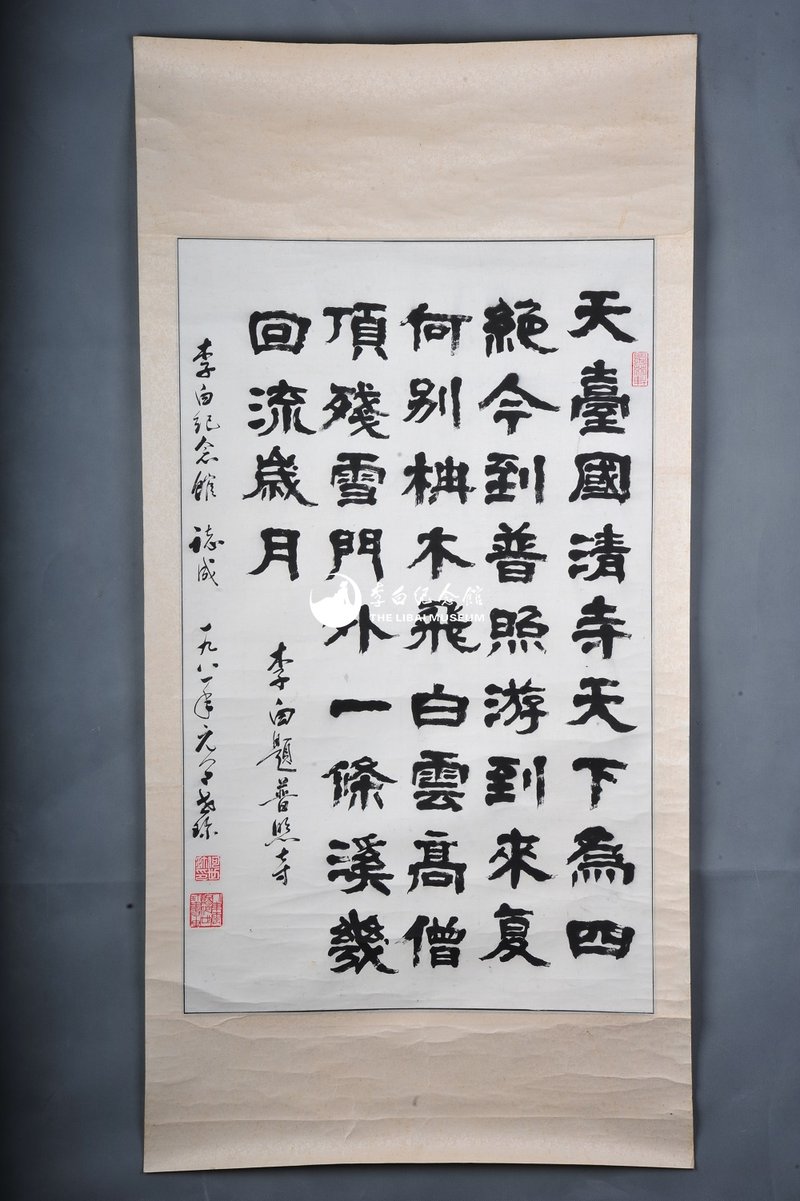 天臺國清寺天下為四
絕今到普照游到來复
何别柟木飛白雲高僧
頂殘雪門外一條溪幾
回流歲月
李白題普照寺
李白紀念館 誌成
一九八一年元月
李白纪念館
THE LIBAI MUSEUM